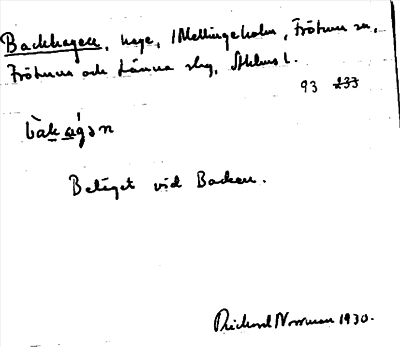 Backhagen, hage, Mellingeholm, Frötuna sn,
Frötuna och Länna slg, Sthlms l.
93 233
bàkàgən
Beläget vid Backen.
Rickard Norrman 1930.